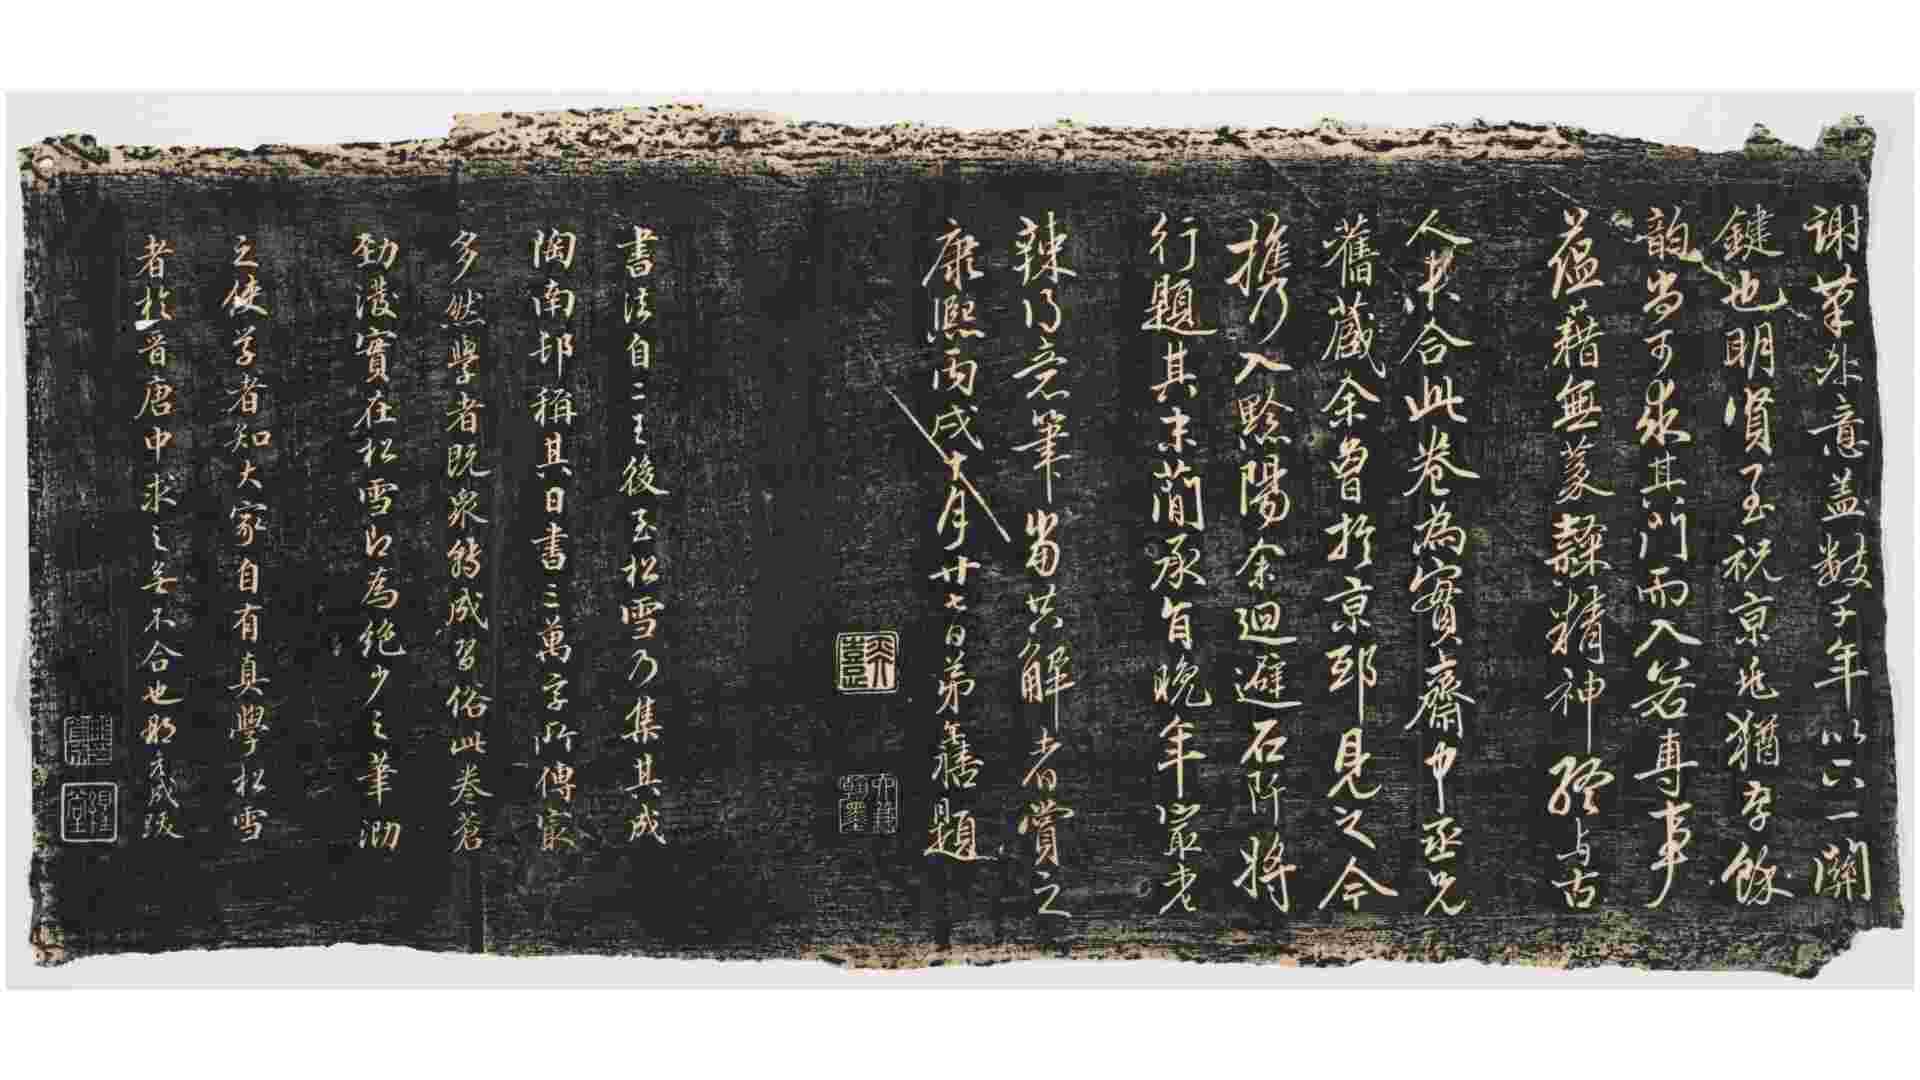 謝筆外意蓋數千年以下一關
鍵也明賢至祝京兆猶存餘
韵尚可求其門而入若專事
蕴藉無篆隸精神終与古
人未合此卷為實齋中丞兄
舊藏余曾於京邸見之今
携乃入黔陽余迴避石阡將
行題其末簡承旨晚年嚴老
辣得意筆當共解者賞之
康熙丙戌十月廿七日弟善題
書法自二王後至松雪乃集其成
陶南邨稱其日書三萬字所傳寂
多然學者既眾転成習俗此卷蒼
勁濃實在松雪即為絶少之筆泐
之使学者知大家自有真學松雪
者於晋唐中求之無不合也彦成跋